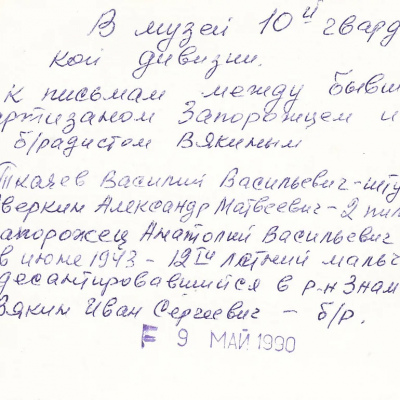 В музей 10й гвард
кой дивизии.
к письмам между бывш
артизаном Запорожцем и
б/радистом Вякиным
Ткачев Василий Васильевич - шту
веркин Александр Матвеевич - 2 пил
апорожец Анатолий Васильевич
в июне 1943 - 12ти летний мальч
десантировавшийся в р-н Знам
Вякин Иван Сергеевич - б/р.
F 9 МАЙ 1990